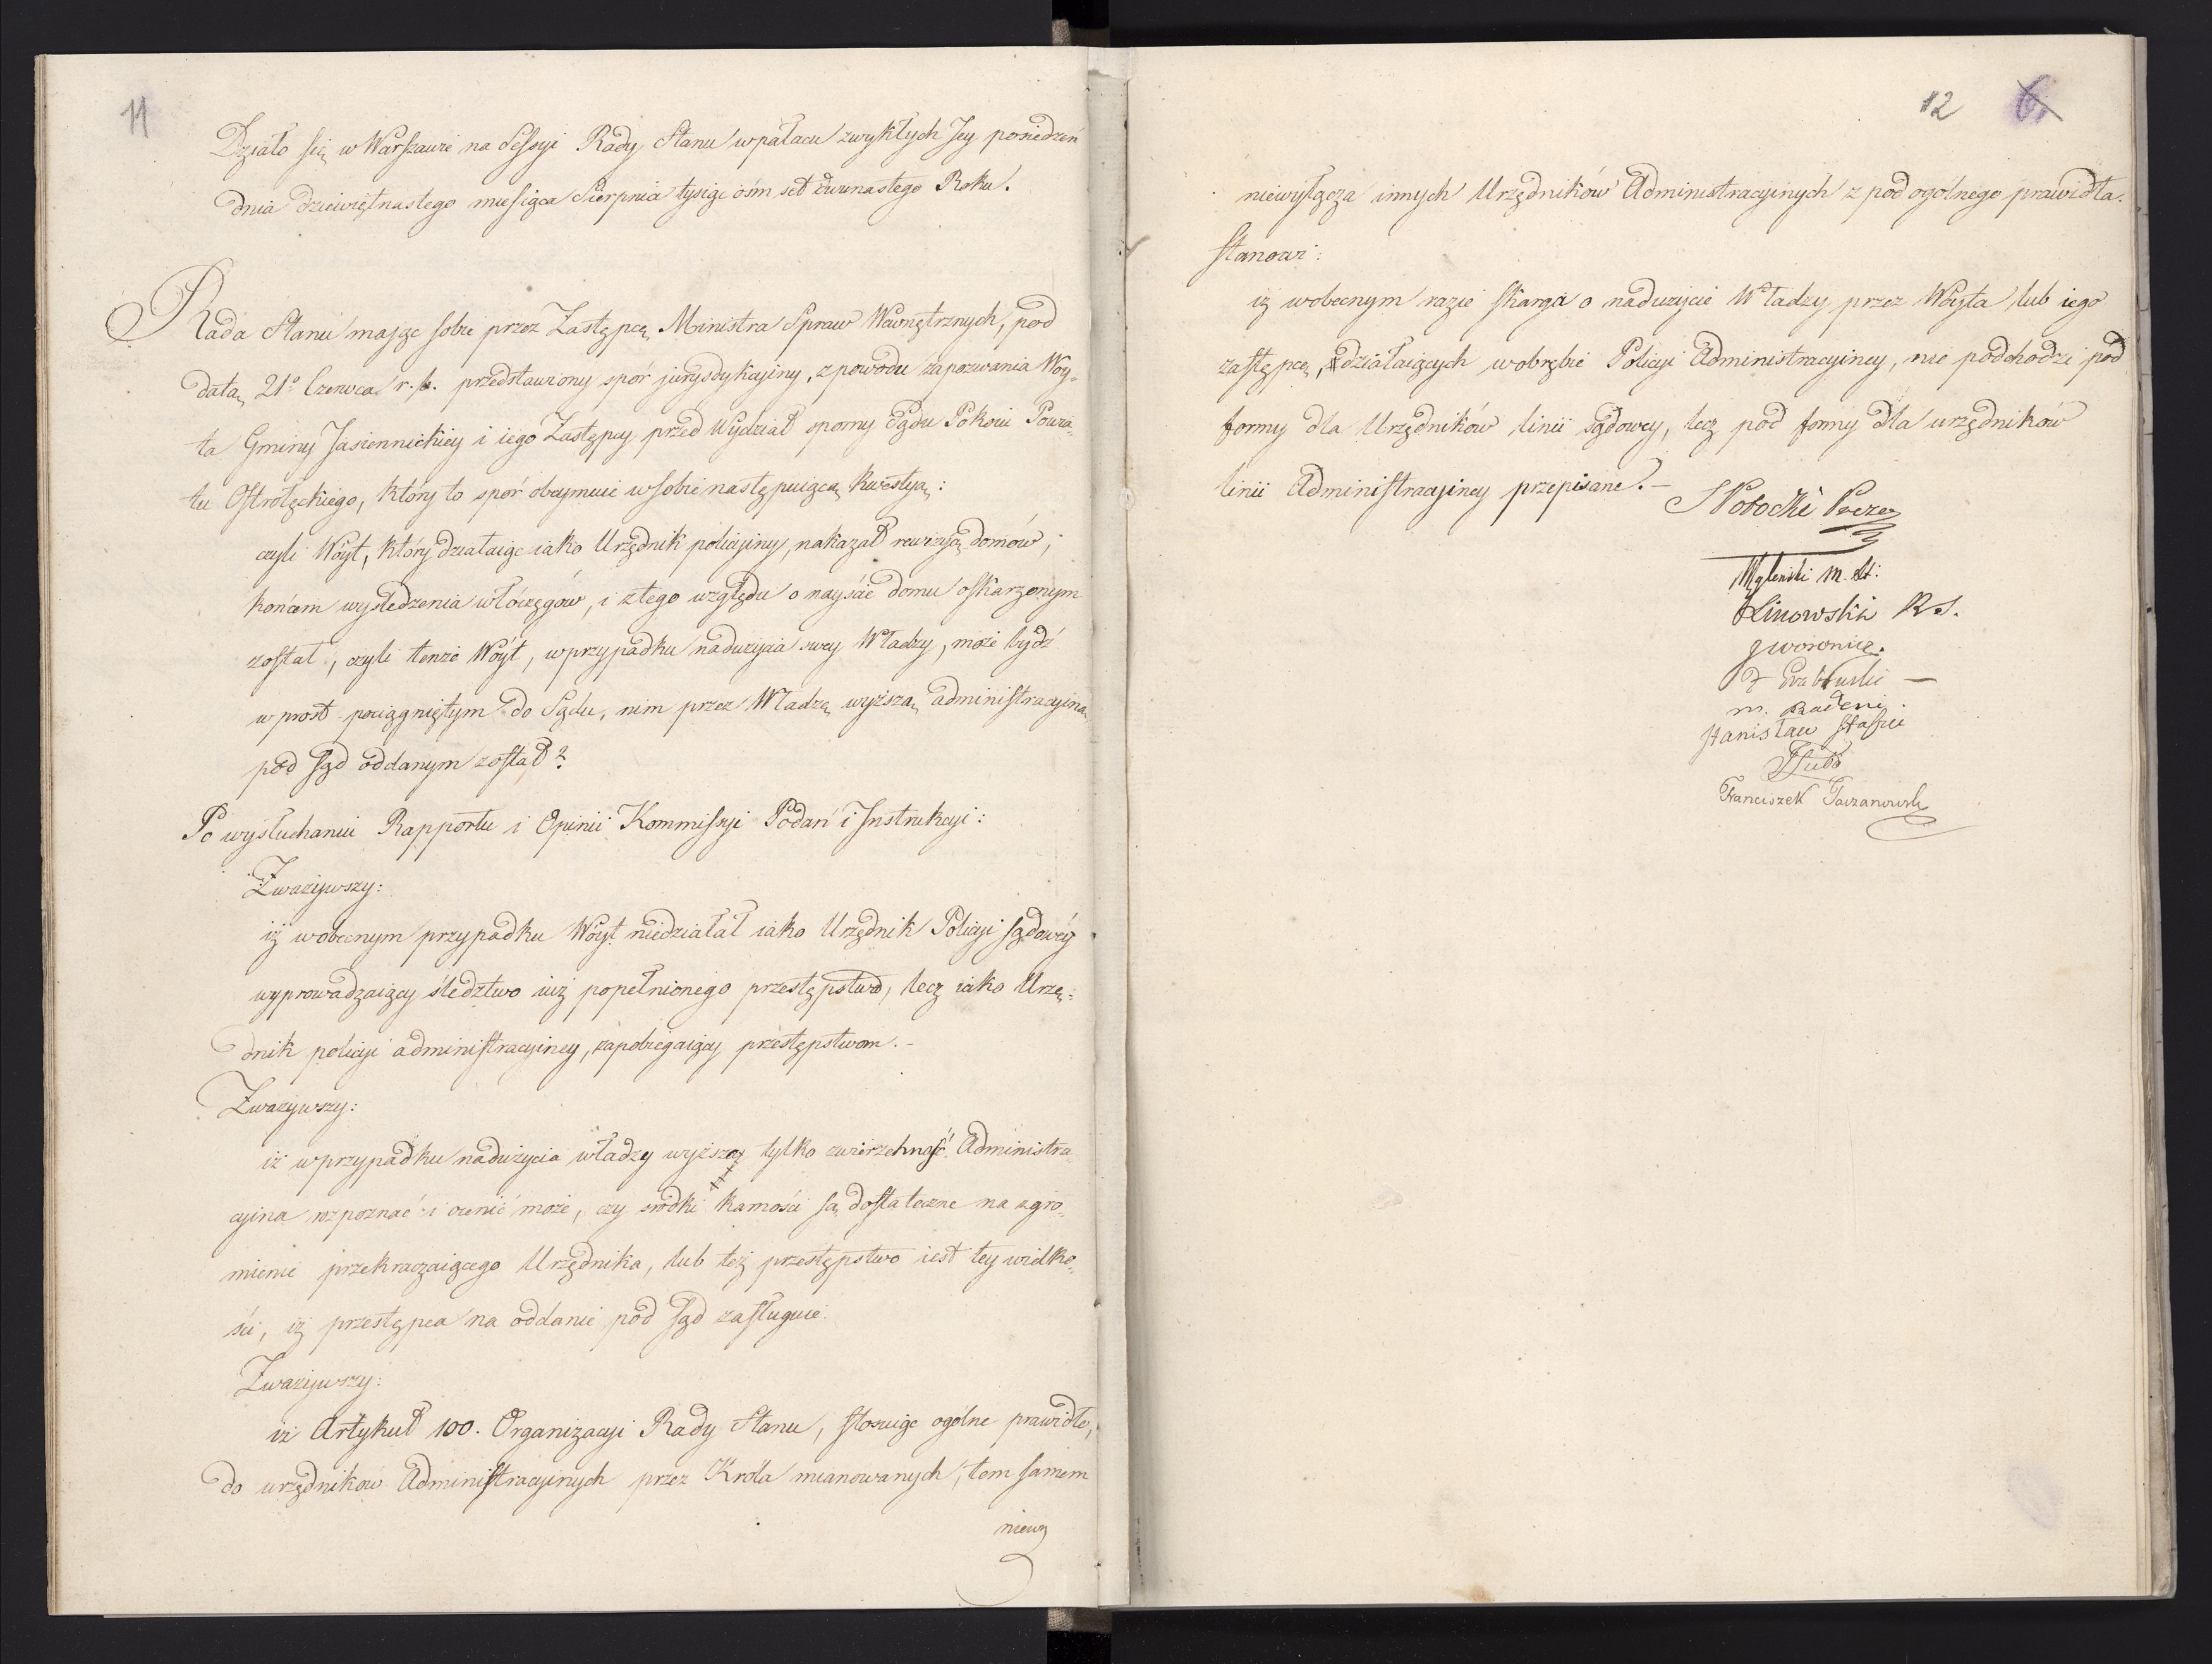 11
Działo się w Warszawie na Sessyi Rady Stanu w pałacu zwykłych Jey posiedzeń
dnia dziewiętnastego miesiąca Sierpnia tysiąc ośm set dwunastego Roku.
Rada Stanu mając sobie przez Zastępcę Ministra Spraw Wewnętrznych, pod
datą 21º Czerwca r. b. przedstawiony spór jurysdykcyiny, z powodu zapozwania Woy-
ta Gminy Jasiennickiey i iego Zastępcy przed Wydział sporny Sądu Pokoiu Powia-
tu Ostrołęckiego, który to spór obeymuie w sobie następuiącą kwestyą:
czyli Wóyt, który działaiąc iako Urzędnik policyiny, nakazał rewizyą domów,
końcem wyśledzenia włóczęgów, i z tego względu o nayście domu oskarżonym
został, czyli tenże Wóyt, w przypadku nadużycia swey Władzy, może bydź
wprost pociągniętym do Sądu, nim przez Władzę wyższą administracyiną
pod sąd oddanym został?
Po wysłuchaniu Rapportu i Opinii Kommissyi Podań i Instrukcyi:
Zważywszy:
iż w obecnym przypadku Wóyt niedziałał iako Urzędnik Policyi sądowéy
wyprowadzaiący śledztwo iuż popełnionego przestępstwa, lecz iako Urzę-
dnik policyi administracyiney, zapobiegaiący przestępstwom.-
Zważywszy:
iż w przypadku nadużycia władzy wyższa tylko zwierzchność Administra-
cyina rozpoznać i ocenić może, czy srodki karności są dostateczne na zgro-
mienie przekraczaiącego Urzędnika, lub też przestępstwo iest tey wielko-
ści, iż przestępca na oddanie pod sąd zasługuie.
Zważywszy:
iż Artykuł 100. Organizacyi Rady Stanu, stosuiąc ogólne prawidło,
do urzędników Administracyinych przez Króla mianowanych, tem samem
niewy
12 6.
niewyłącza innych Urzędników Administracyinych z pod ogólnego prawidła.
stanowi:
iż w obecnym razie skarga o nadużycie Władzy przez Wóyta lub iego
zastępcę, działaiących w obrębie Policyi Administracyiney, nie podchodzi pod
formy dla Urzędników linii sądowey, lecz pod formy dla urzędników
linii Administracyiney przepisane.-
S Potocki Prezes
Węgleński M. St:
Linowski R S.
Stanisław Staszic
Franciszek